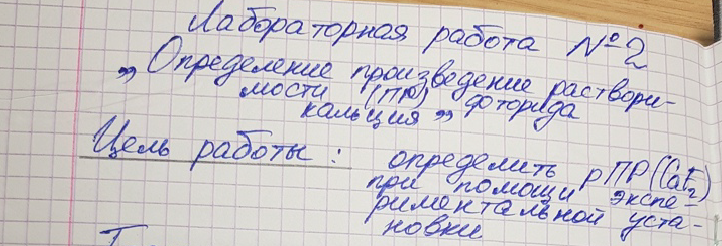 Лабораторная работа №2
„Определение произведение раствори-
мости (ПР) фторида
кальция„
Цель работы: определить рПР(CaF₂)
при помощи экспе-
риментальной уста-
новки